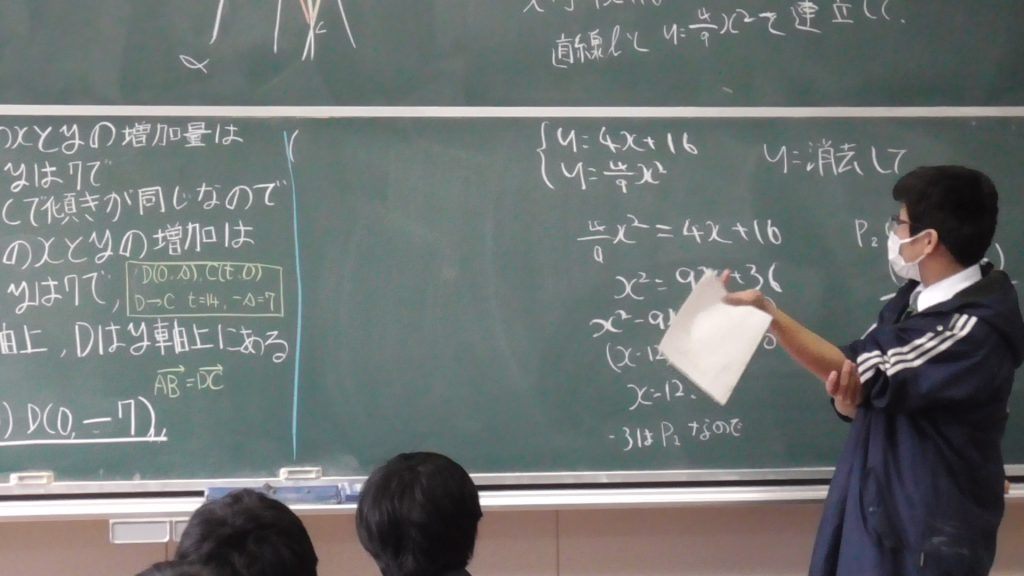 直線lと y=4/9x²で連立して.
のxとyの増加量は
yは7で
くて傾きが同じなので
のxとyの増加は
yは7で,
D(0,s),C(t,0)
D→C t=14, -s=7
軸上,Dはy軸上にある
AB=DC
) D(0,-7)
y=4x+16
y=4/9x²
y=消去して
4/9x²=4x+16
P₂
x²=9x+36
x²-9
(x-12
x=12.
-3はP₂なので